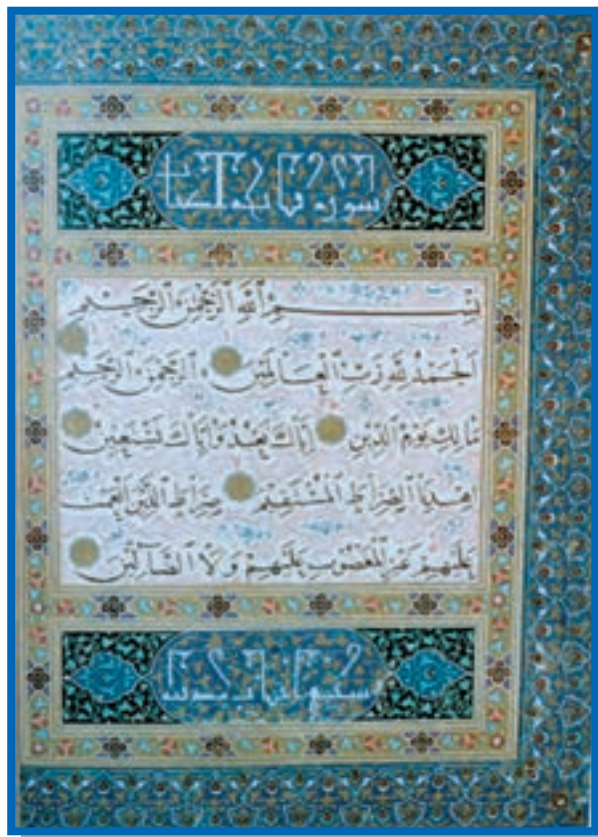 سورة فاتحة الكتاب
بِسْمِ ٱللَّهِ ٱلرَّحْمَٰنِ ٱلرَّحِيمِ
ٱلْحَمْدُ لِلَّهِ رَبِّ ٱلْعَالَمِينَ ٱلرَّحْمَٰنِ ٱلرَّحِيمِ
مَالِكِ يَوْمِ ٱلدِّينِ إِيَّاكَ نَعْبُدُ وَإِيَّاكَ نَسْتَعِينُ
ٱهْدِنَا ٱلصِّرَاطَ ٱلْمُسْتَقِيمَ صِرَاطَ ٱلَّذِينَ أَنْعَمْتَ
عَلَيْهِمْ غَيْرِ ٱلْمَغْضُوبِ عَلَيْهِمْ وَلَا ٱلضَّالِّينَ